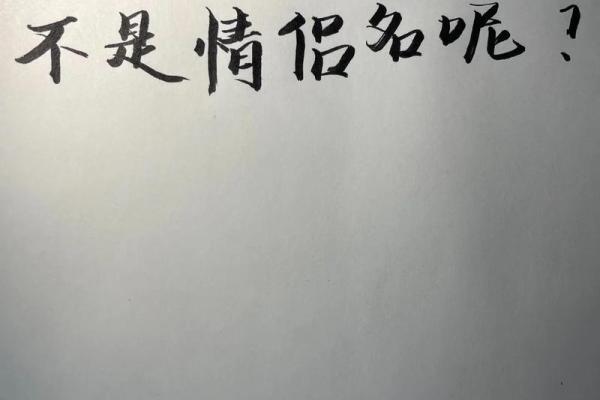 不是情侣名呢？